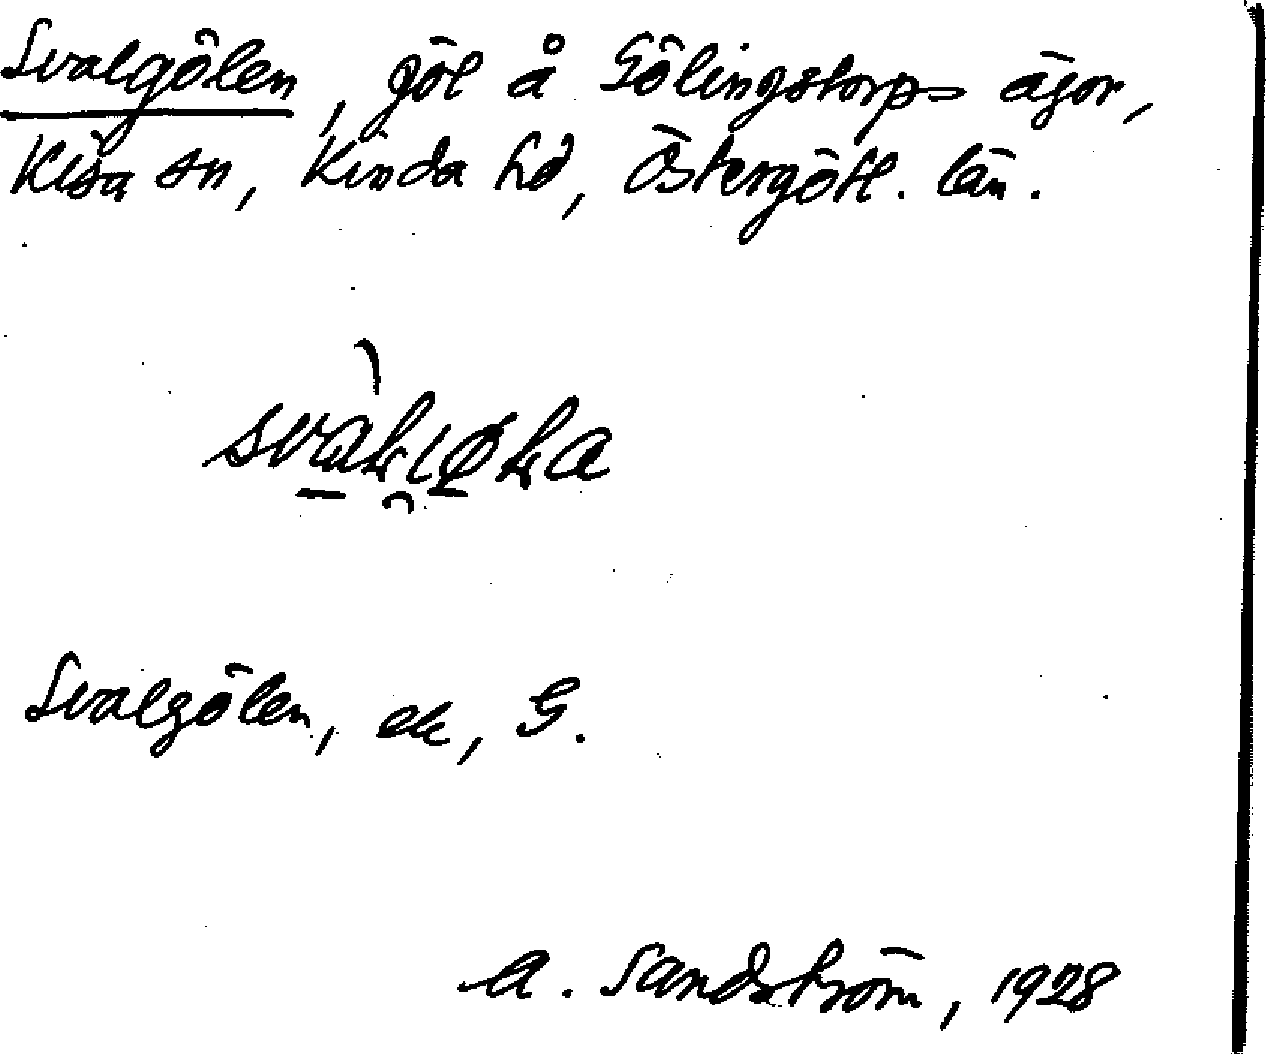 Svalgölen, göl å Gölingstorps ägor,
Kisa sn, Kinda hd, Östergötl. län.
Svalgölen, ek, G.
A. Sandström, 1928